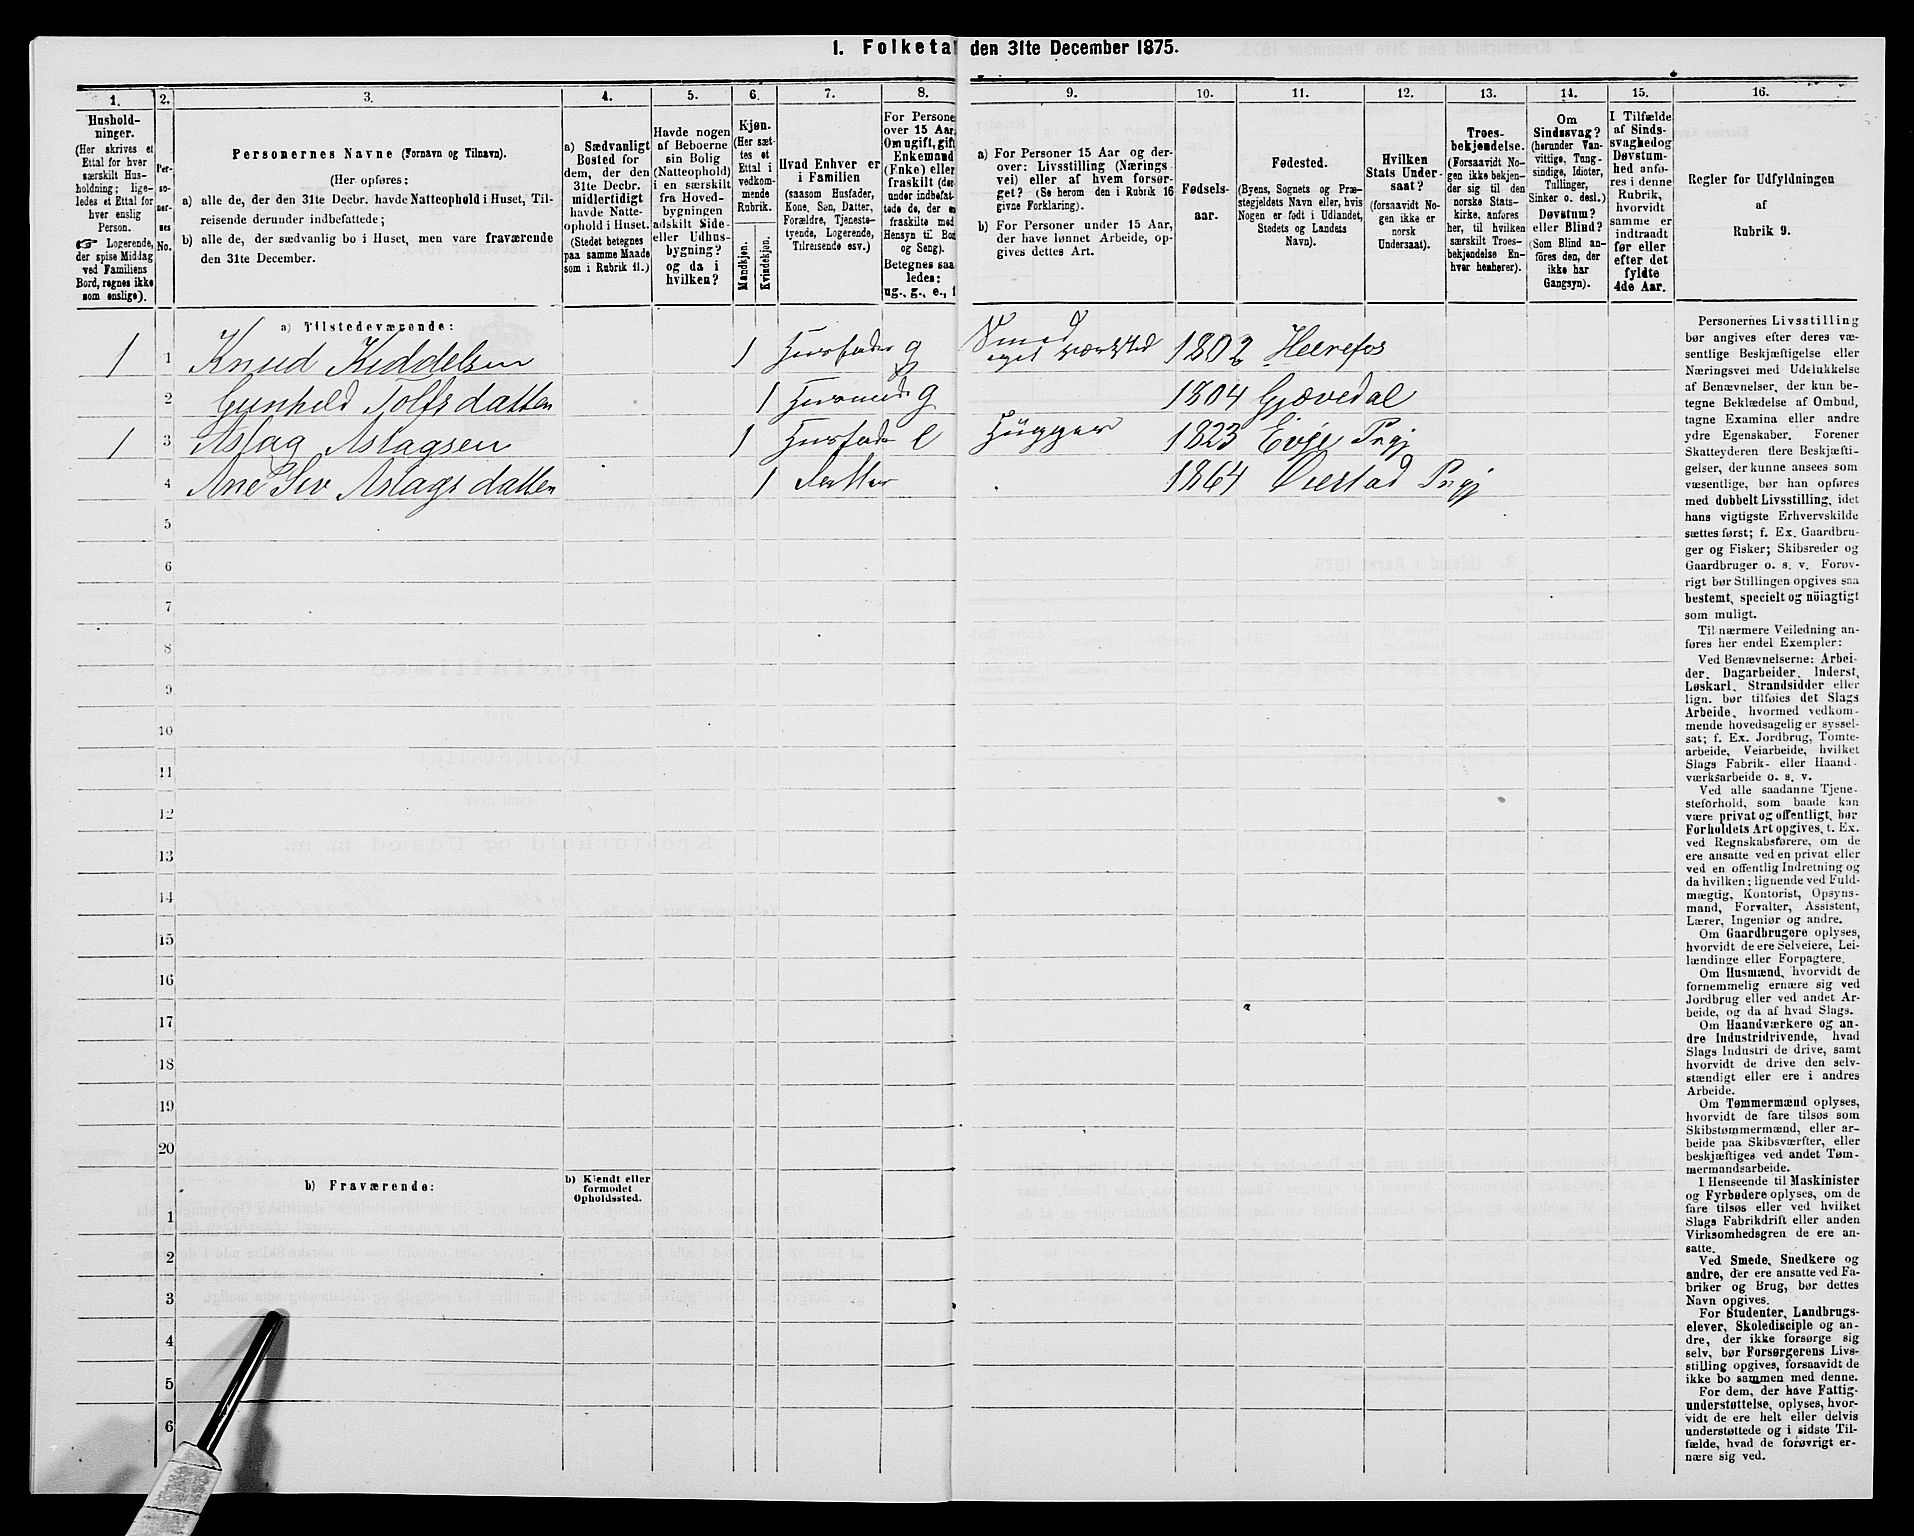 I. Folketa den 31te December 1875.
1.
2.
3.
4.
5.
6.
7.
8.
9.
10.
11.
12.
13.
14.
15.
16.
Hushold-
ninger.
(Her skrives et
Ettal for hver
særskilt Hus-
holdning; lige-
ledes et Ettal for
hver enslig
Person.
☞ Logerende,
der spise Middag
ved Familiens
Bord, regnes ikke
som enslige).
Per-
so-
ner-
nes
No.
Personernes Navne (Fornavn og Tilnavn).
(Her opføres:
a) alle de, der den 31te Decbr. havde Natteophold i Huset, Til-
reisende derunder indbefattede;
b) alle de, der sædvanlig bo i Huset, men vare fraværende
den 31te December.
a) Sædvanligt
Bosted for
dem, der den
31te Decbr.
midlertidigt
havde Natte-
ophold i Huset.
(Stedet betegnes
paa samme Maade
som i Rubrik 11.)
Havde nogen
af Beboerne
sin Bolig
(Natteophold)
i en særskilt
fra Hoved-
bygningen
adskilt Side-
eller Udhus-
bygning?
og da i
hvilken?
Kjøn.
(Her sæt-
tes et
Ettal i
vedkom-
mende
Rubrik.
Mandkjøn.
Kvindekjøn.
Hvad Enhver er
i Familien
(saasom Husfader,
Kone, Søn, Datter,
Forældre, Tjeneste-
tyende, Logerende,
Tilreisende osv.)
For Persone
over 15 Aar,
Om ugift, gift
Enkemand
(Enke) eller
fraskilt (der-
under indbefat-
tede de, der e
fraskilte med
Hensyn til Bo
og Seng).
Betegnes saa
ledes:
ug., g., e., f
a) For Personer 15 Aar og der-
over: Livsstilling (Nærings-
vei) eller af hvem forsør-
get? (Se herom den i Rubrik 16
givne Forklaring).
b) For Personer under 15 Aar,
der have lønnet Arbeide, op-
gives dettes Art.
Fødsels-
aar.
Fødested.
(Byens, Sognets og Præ-
stegjeldets Navn eller, hvis
Nogen er født i Udlandet,
Stedets og Landets
Navn).
Hvilken
Stats Under-
saat?
(forsaavidt No-
gen ikke er
norsk
Undersaat).
Troes-
bekjendelse.
(Forsaavidt No-
gen ikke bekjen-
der sig til den
norske Stats-
kirke, anføres
her, til hvilken
særskilt Troes-
bekjendelse En-
hver henhører).
Om
Sindssvag?
(herunder Van-
vittige, Tung-
sindige, Idioter,
Tullinger,
Sinker o. desl.)
Døvstum?
eller Blind?
(Som Blind an-
føres den, der
ikke har
Gangsyn).
I Tilfælde
af Sinds-
svaghed og
Døvstum-
hed anfø-
res i denne
Rubrik,
hvorvidt
samme er
indtraadt
før eller
efter det
fyldte
4de Aar.
Regler for Udfyldningen
af
Rubrik 9.
a) Tilstedeværende:
1 1 Knud Kiddelsen 1 Husfader g Smed eget værksted 1802 Heerefos
2 Gunhild Tolfsdatten 1 Husmoder g 1804 Gjøvedal
1 3 Aslag Aslagsen 1 Husfader e Hugger 1823 Evje Prgj
4 Ane Siv Aslagsdatten 1 Datter 1864 Øiestad Prgj
5
6
7
8
9
10
11
12
13
14
15
16
17
18
19
20
b) Fraværende:
b) Kjendt eller
formodet
Opholdssted.
1
2
3
4
5
6
Personernes Livsstilling
bør angives efter deres væ-
sentlige Beskjæftigelse eller
Næringsvei med Udelukkelse
af Benævnelser, der kun be-
tegne Beklædelse af Ombud,
tagne Examina eller andre
ydre Egenskaber. Forener
Skatteyderen flere Beskjæfti-
gelser, der kunne ansees som
væsentlige, bør han opføres
med dobbelt Livsstilling, idet
hans vigtigste Erhvervskilde
sættes først; f. Ex. Gaardbru-
ger og Fisker; Skibsreder og
Gaardbruger o. s. v. Forøv-
rigt bør Stillingen opgives saa
bestemt, specielt og nöiagtigt
som muligt.
Til nærmere Veiledning an-
føres her endel Exempler:
Ved Benævnelserne: Arbei-
der, Dagarbeider, Inderst,
Løskarl, Strandsidder eller
lign. bør tilføies det Slags
Arbeide, hvormed vedkom-
mende hovedsagelig er syssel-
sat; f. Ex. Jordbrug, Tomte-
arbeide, Veiarbeide, hvilket
Slags Fabrik- eller Haand-
værksarbeide o. s. v.
Ved alle saadanne Tjene-
steforhold, som baade kan
være privat og offentligt, bør
Forholdets Art opgives, t. Ex.
ved Regnskabsførere, om de
ere ansatte ved en privat eller
ved en offentlig Indretning og
da hvilken; lignende ved Fuld-
mægtig, Kontorist, Opsyns-
mand, Forvalter, Assistent,
Lærer, Ingeniør og andre.
Om Gaardbrugere oplyses,
hvorvidt de ere Selveiere, Lei-
lændinge eller Forpagtere.
Om Husmænd, hvorvidt de
fornemmelig ernære sig ved
Jordbrug eller ved andet Ar-
beide, og da af hvad Slags.
Om Haandværkere og an-
dre Industridrivende, hvad
Slags Industri de drive, samt
hvorvidt de drive den selv-
stændigt eller ere i andres
Arbeide.
Om Tømmermænd oplyses,
hvorvidt de fare tilsøs som
Skibstømmermænd, eller ar-
beide paa Skibsværfter, eller
beskjæftiges ved andet Tøm-
mermandsarbeide.
I Henseende til Maskinister
og Fyrbødere oplyses, om de
fare tilsøs eller ved hvilket
Slags Fabrikdrift eller anden
Virksomhedsgren de ere an-
satte.
Ved Smede, Snedkere og
andre, der ere ansatte ved Fa-
briker og Brug, bør dettes
Navn opgives.
For Studenter, Landbrugs-
elever, Skoledisciple og an-
dre, der ikke forsørge sig
selv, bør Forsørgerens Livs-
stilling opgives, forsaavidt de
ikke bo sammen med denne.
For dem, der have Fattig-
understøttelse, oplyses, hvor-
vidt de ere helt eller delvis
understøttede og i sidste Til-
fælde, hvad de forøvrigt er-
nære sig ved.